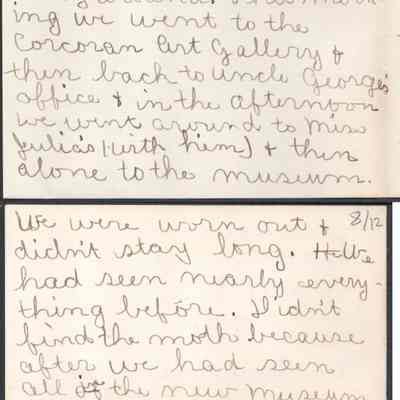 ing we went to the
Corcoran Art Gallery &
then back to Uncle George's
office & in the afternoon
we went around to Miss
Julia's (with him) & then
alone to the museum.
We were worn out & 8/12
didn't stay long. He We
had seen nearly every-
thing before. I didn't
find the moth because
after we had seen
all in the new Museum